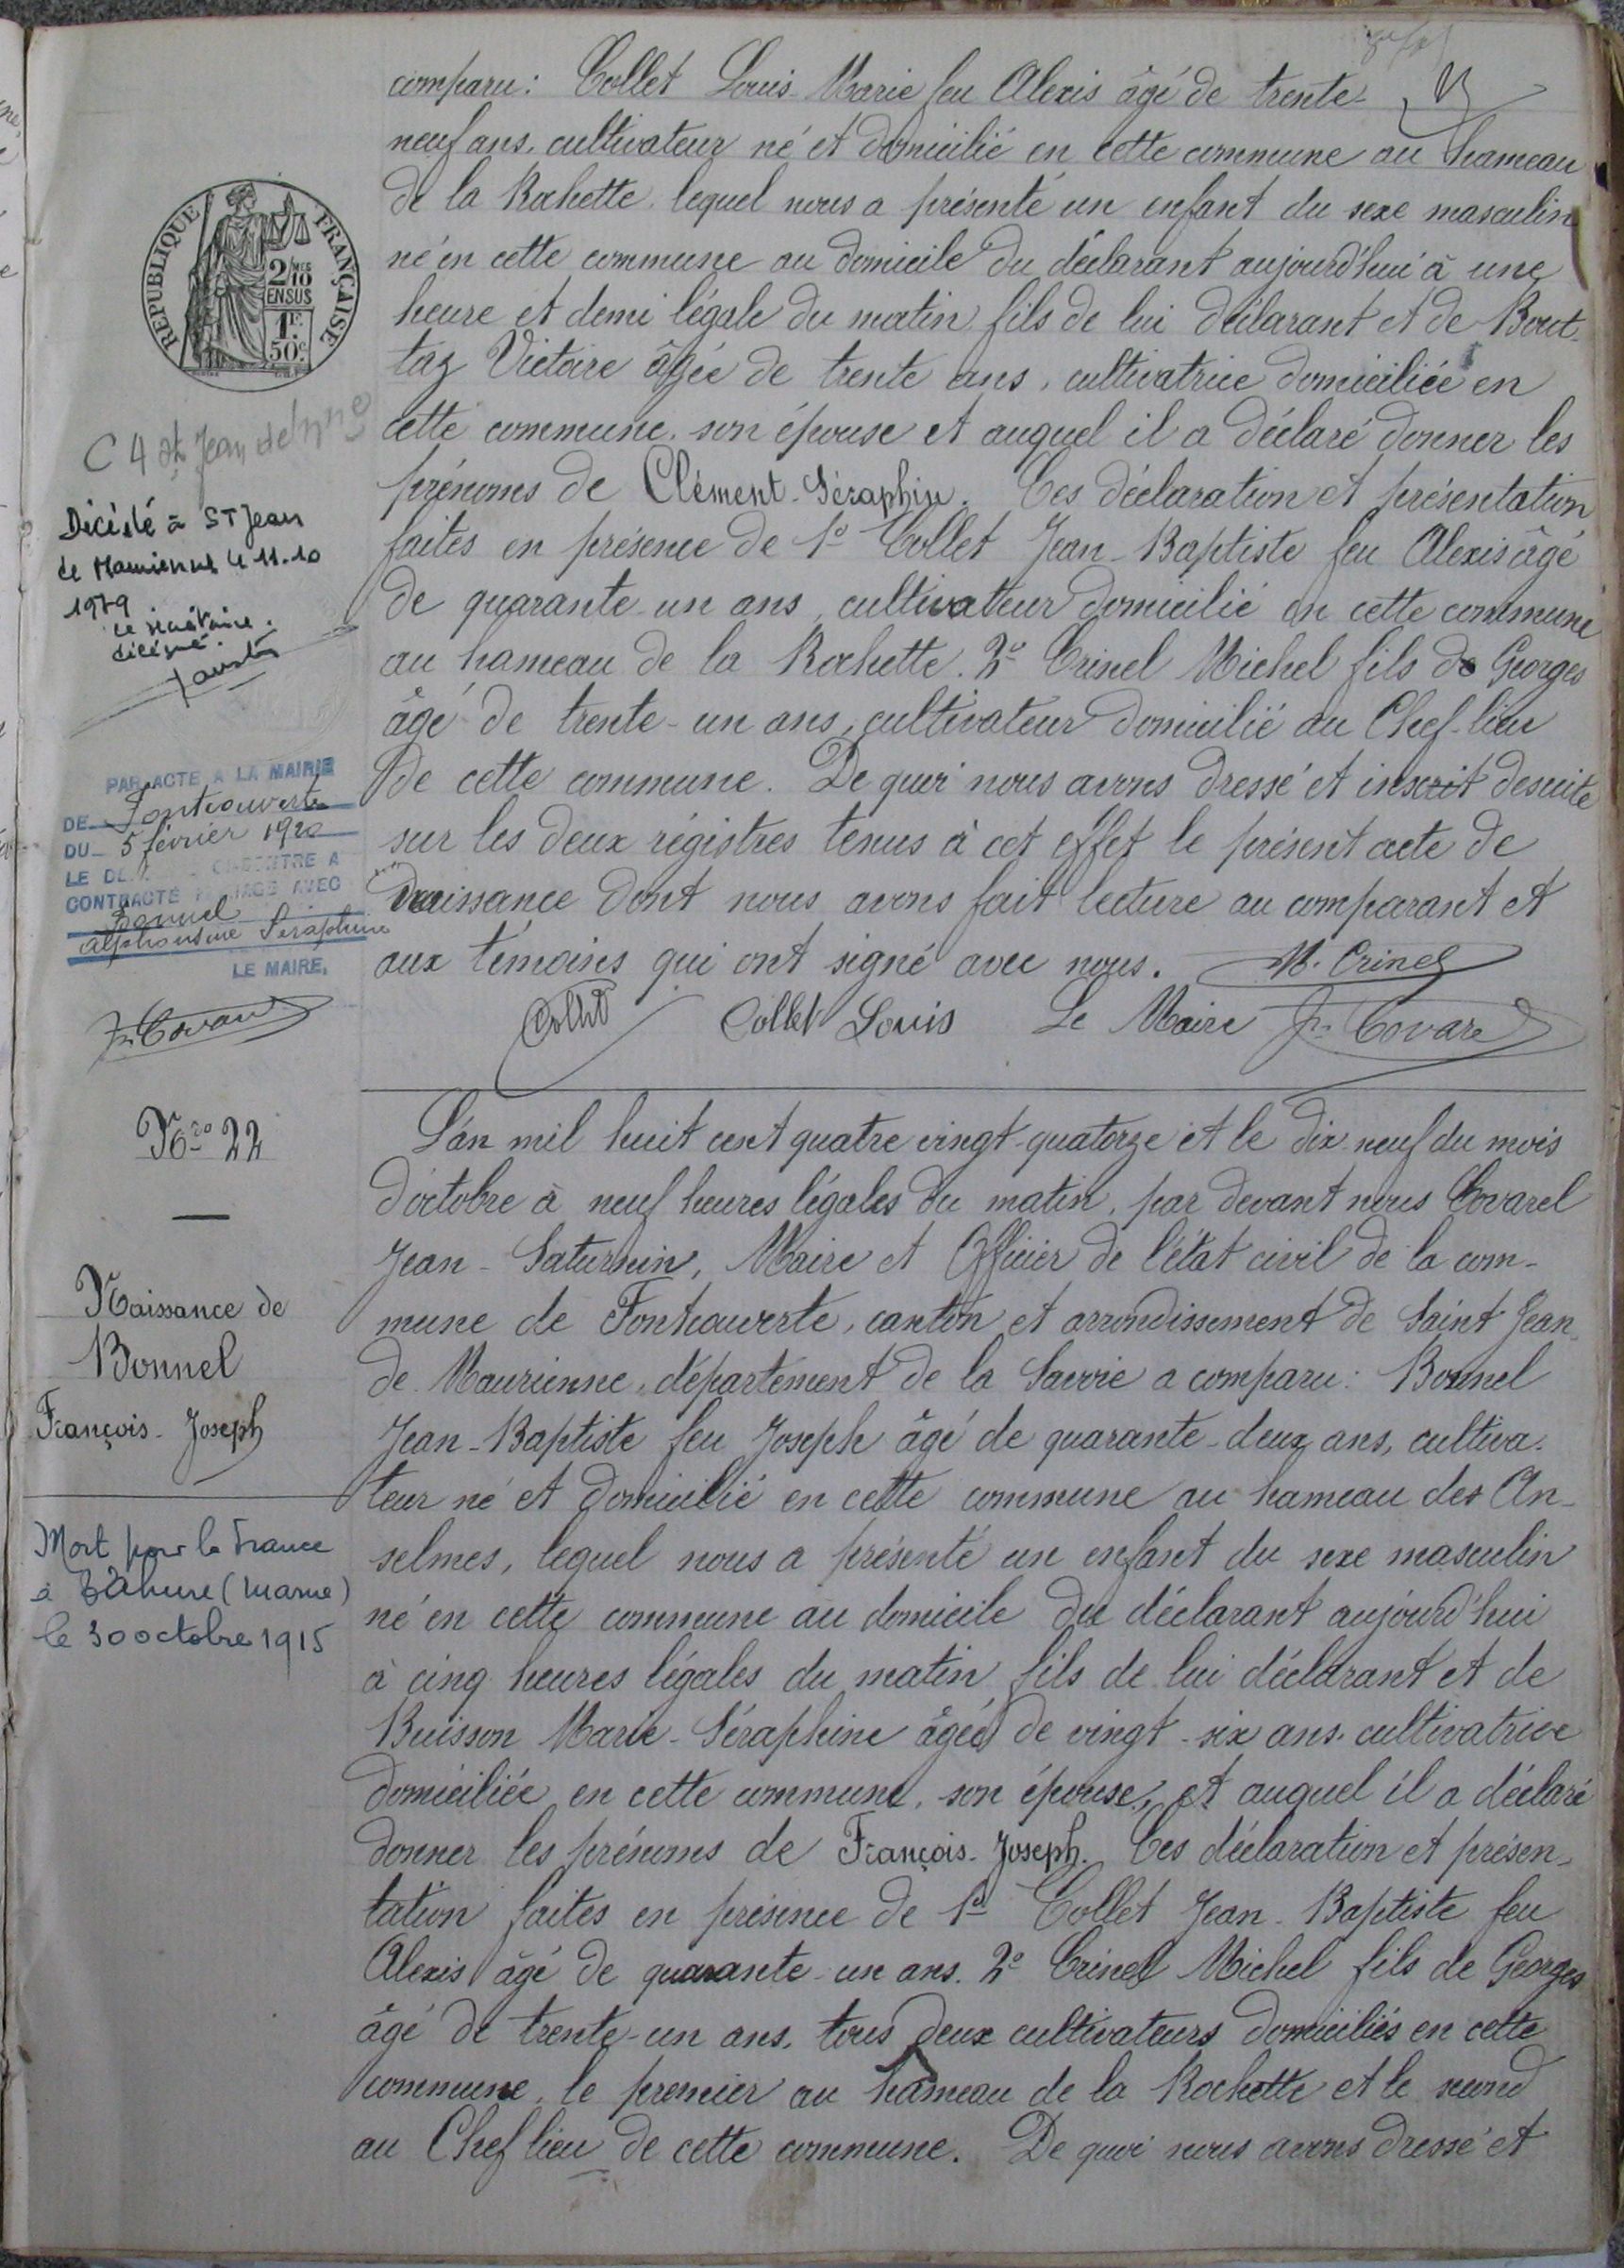 comparu: Collet Louis-Marie feu Alexis âgé de trente-
neuf ans, cultivateur né et domicilié en cette commune au hameau
de la Rochette, lequel nous a présenté un enfant du sexe masculin
né en cette commune au domicile du déclarant aujourd'hui à une
heure et demi légale du matin fils de lui déclarant et de Bout-
taz Victoire âgée de trente ans, cultivatrice domiciliée en
cette commune, son épouse et auquel il a déclaré donner les
prénoms de Clément-Séraphin. Ces déclaration et présentation
faites en présence de 1º Collet Jean-Baptiste feu Alexis âgé
de quarante-un ans, cultivateur domicilié en cette commune
au hameau de la Rochette. 2º Crinel Michel fils de Georges
âgé de trente-un ans, cultivateur domicilié au Chef-lieu
de cette commune. De quoi nous avons dressé et inscrit desuite
sur les deux régistres tenus à cet effet le présent acte de
naissance dont nous avons fait lecture au comparant et
aux témoins qui ont signé avec nous. M. Crinel
Collet Collet Louis Le Maire Jn Covarel
REPUBLIQUE FRANÇAISE
2/10 MES
EN SUS
1F.
50c.
C 4 St Jean de
Décédé à ST Jean
de Maurienne le 11.10
19
le secrétaire
délégué.
PAR ACTE A LA MAIRIE
DE Fontcouverte
DU 5 février 1920
LE CI-CONTRE A
CONTRACTÉ MARIAGE AVEC
Bonnel
Alphonsine Séraphine
LE MAIRE,
Jn Covarel
Nro 22
Naissance de
Bonnel
François-Joseph
Mort pour la France
à Tahure (Marne)
le 30 octobre 1915
L'an mil huit cent quatre vingt-quatorze et le dix-neuf du mois
d'octobre à neuf heures légales du matin, par devant nous Covarel
Jean-Saturnin, Maire et Officier de l'état civil de la com-
mune de Fontcouverte, canton et arrondissement de Saint Jean-
de Maurienne, département de la Savoie a comparu: Bonnel
Jean-Baptiste feu Joseph âgé de quarante-deux ans, cultiva-
teur né et domicilié en cette commune au hameau des An-
selmes, lequel nous a présenté un enfant du sexe masculin
né en cette commune au domicile du déclarant aujourd'hui
à cinq heures légales du matin fils de lui déclarant et de
Buisson Marie-Séraphine âgée de vingt-six ans, cultivatrice
domiciliée en cette commune, son épouse, et auquel il a déclaré
donner les prénoms de François-Joseph. Ces déclaration et présen-
tation faites en présence de 1º Collet Jean-Baptiste feu
Alexis âgé de quarante-un ans. 2º Crinel Michel fils de Georges
âgé de trente-un ans, tous deux cultivateurs domiciliés en cette
commune, le premier au hameau de la Rochette et le second
au Chef lieu de cette commune. De quoi nous avons dressé et